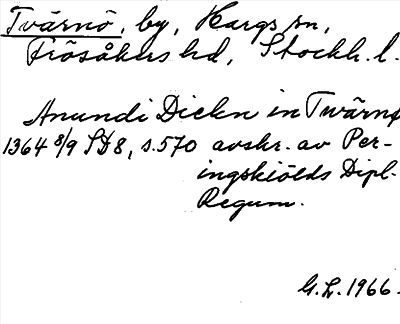 Tvärnö, by, Hargs sn,
Frösåkers hd, Stockh. l.
Anundi Diekn in Twärnø
1364 8/9 SD 8, s. 570 avskr. av Per-
ingskiölds Dipl.
Regum.
G.L. 1966.